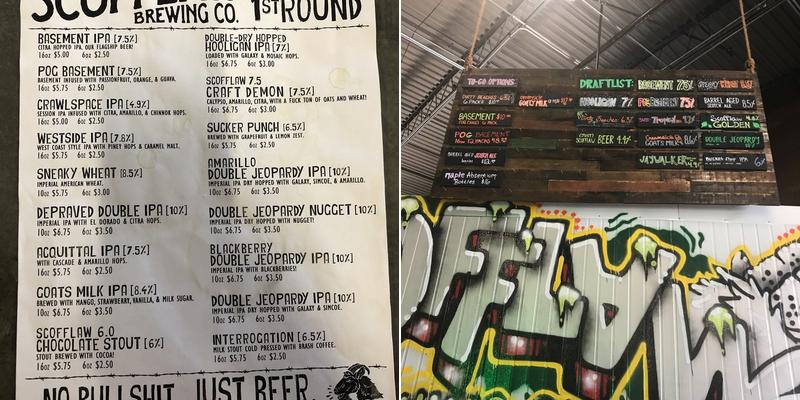 SCOFFLAW
BREWING CO. 1ST ROUND
BASEMENT IPA [7.5%]
CITRA HOPPED IPA, OUR FLAGSHIP BEER!
16oz $5.00 6oz $2.50
POG BASEMENT [7.5%]
BASEMENT INFUSED WITH PASSIONFRUIT, ORANGE, & GUAVA.
16oz $5.75 6oz $2.50
CRAWLSPACE IPA [4.9%]
SESSION IPA INFUSED WITH CITRA, AMARILLO, & CHINNOK HOPS.
16oz $5.00 6oz $2.50
WESTSIDE IPA [7.8%]
WEST COAST STYLE IPA WITH PINEY HOPS & CARAMEL MALT.
16oz $5.75 6oz $2.50
SNEAKY WHEAT [8.5%]
IMPERIAL AMERICAN WHEAT.
10oz $5.75 6oz $3.00
DEPRAVED DOUBLE IPA [10%]
IMPERIAL IPA WITH EL DORADO & CITRA HOPS.
10oz $6.75 6oz $3.50
ACQUITTAL IPA [7.5%]
WITH CASCADE & AMARILLO HOPS.
16oz $5.75 6oz $2.50
GOATS MILK IPA [8.4%]
BREWED WITH MANGO, STRAWBERRY, VANILLA, & MILK SUGAR.
10oz $6.75 6oz $3.50
SCOFFLAW 6.0
CHOCOLATE STOUT [6%]
STOUT BREWED WITH COCOA!
16oz $5.75 6oz $2.50
DOUBLE-DRY HOPPED
HOOLIGAN IPA [7%]
LOADED WITH GALAXY & MOSAIC HOPS.
16oz $6.75 6oz $3.00
SCOFFLAW 7.5
CRAFT DEMON [7.5%]
CALYPSO, AMARILLO, CITRA, WITH A FUCK TON OF OATS AND WHEAT!
16oz $6.75 6oz $3.00
SUCKER PUNCH [6.5%]
BREWED WITH GRAPEFRUIT & LEMON ZEST.
16oz $5.75 6oz $2.50
AMARILLO
DOUBLE JEOPARDY IPA [10%]
IMPERIAL IPA DRY HOPPED WITH GALAXY, SIMCOE, & AMARILLO.
10oz $6.75 6oz $3.50
DOUBLE JEOPARDY NUGGET [10%]
IMPERIAL IPA DRY HOPPED WITH NUGGET!
10oz $6.75 6oz $3.50
BLACKBERRY
DOUBLE JEOPARDY IPA [10%]
IMPERIAL IPA WITH BLACKBERRIES!
10oz $6.75 6oz $3.50
DOUBLE JEOPARDY IPA [10%]
IMPERIAL IPA DRY HOPPED WITH GALAXY & SIMCOE.
10oz $6.75 6oz $3.50
INTERROGATION [6.5%]
MILK STOUT COLD PRESSED WITH BRASH COFFEE.
16oz $5.75 6oz $2.50
NO BULLSHIT. JUST BEER.
TO-GO OPTIONS
BASEMENT
POG BASEMENT
Maple
Bottles
DRAFT LIST:
HOOLIGAN 7%
SCOFFLAW BEER 4.4%
BASEMENT 7.5%
POG
Tropical
GOATS MILK
JAYWALKER
BARREL AGED
SCOFFLAW
GOLDEN
DOUBLE JEOPARDY